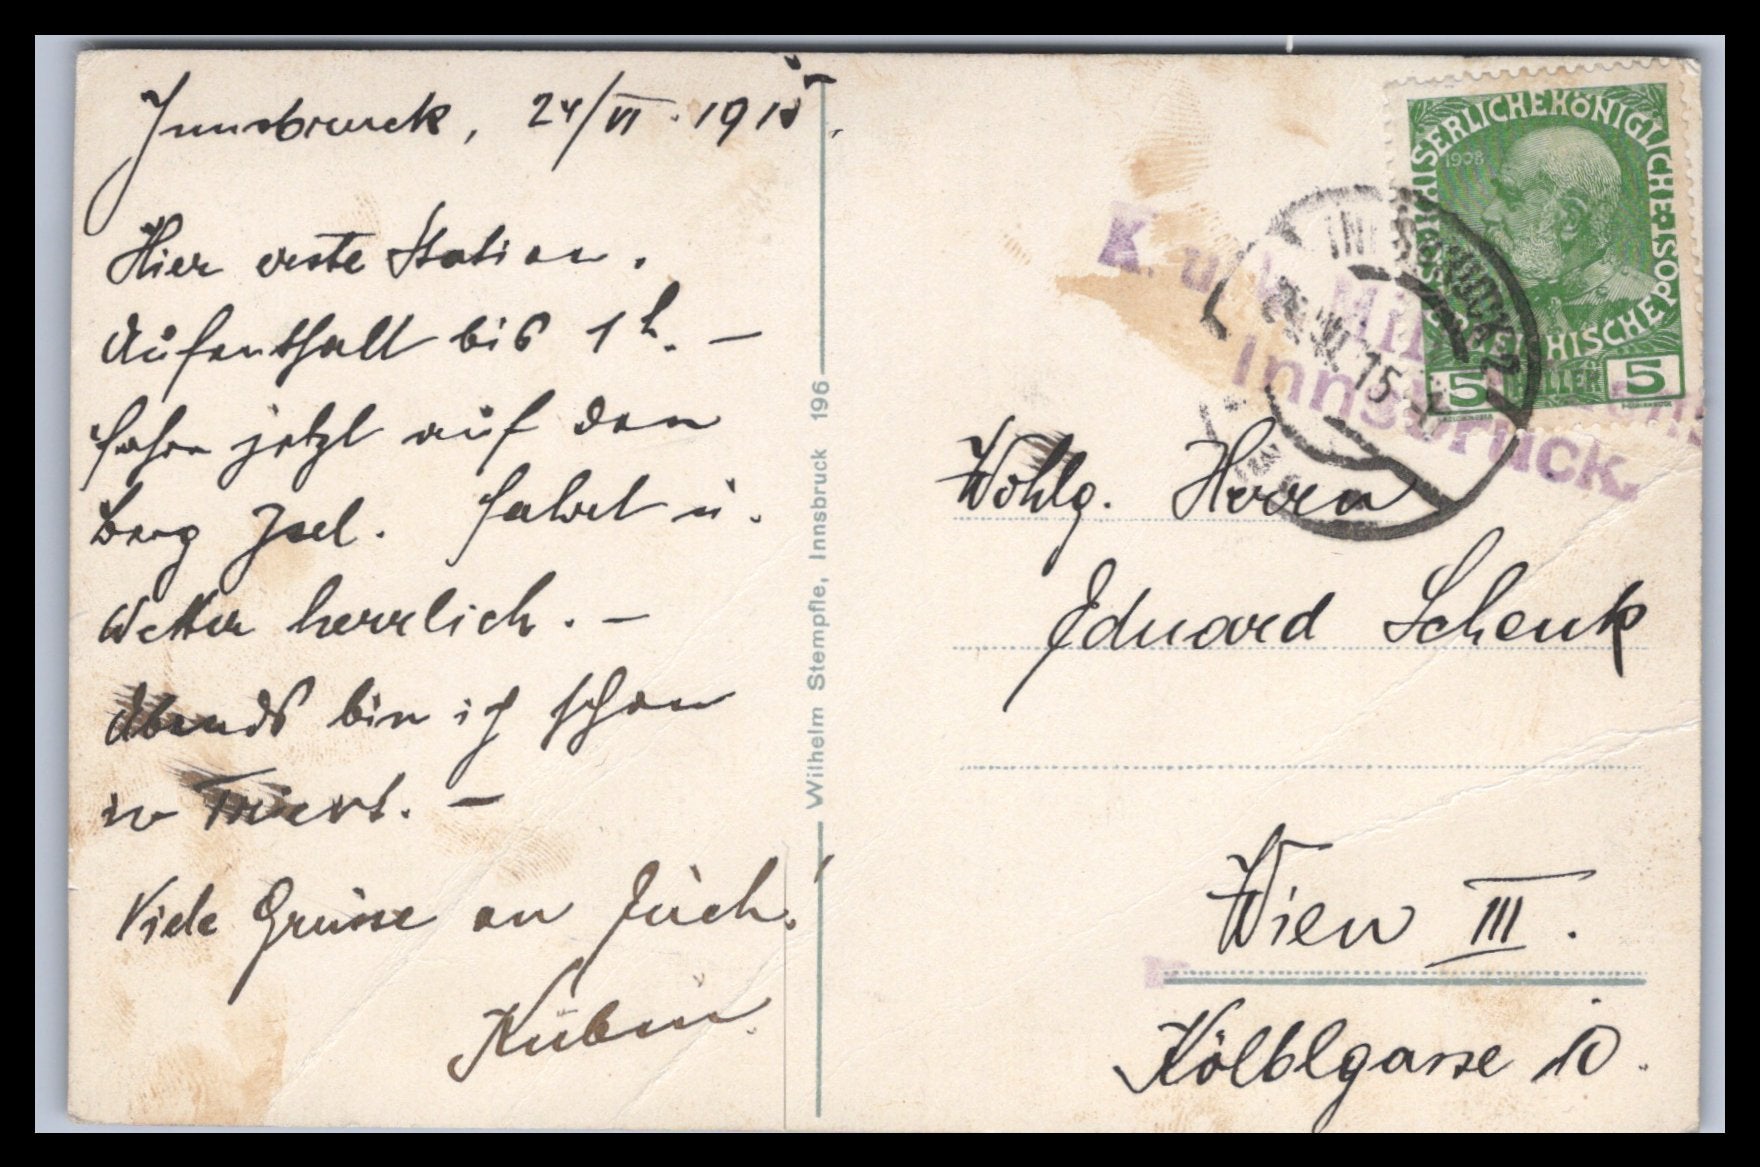 Innsbruck, 24/VI. 1915.
Hier erste Station.
Aufenthalt bis 1 h. —
Fahre jetzt auf den
Berg Isel. Fahrt u.
Wetter herrlich. —
Abends bin ich schon
in Triest. —
Viele Grüsse an Euch!
Wilhelm Stempfle, Innsbruck 196
KAISERLICHE KÖNIGLICHE ÖSTERREICHISCHE POST
1908
5 HELLER 5
INNSBRUCK 2
24.VI.15
K. u. k. Mil
Innsbruck.
Wohlg. Herrn
Eduard Schenk
Wien III.
Kölblgasse 10.